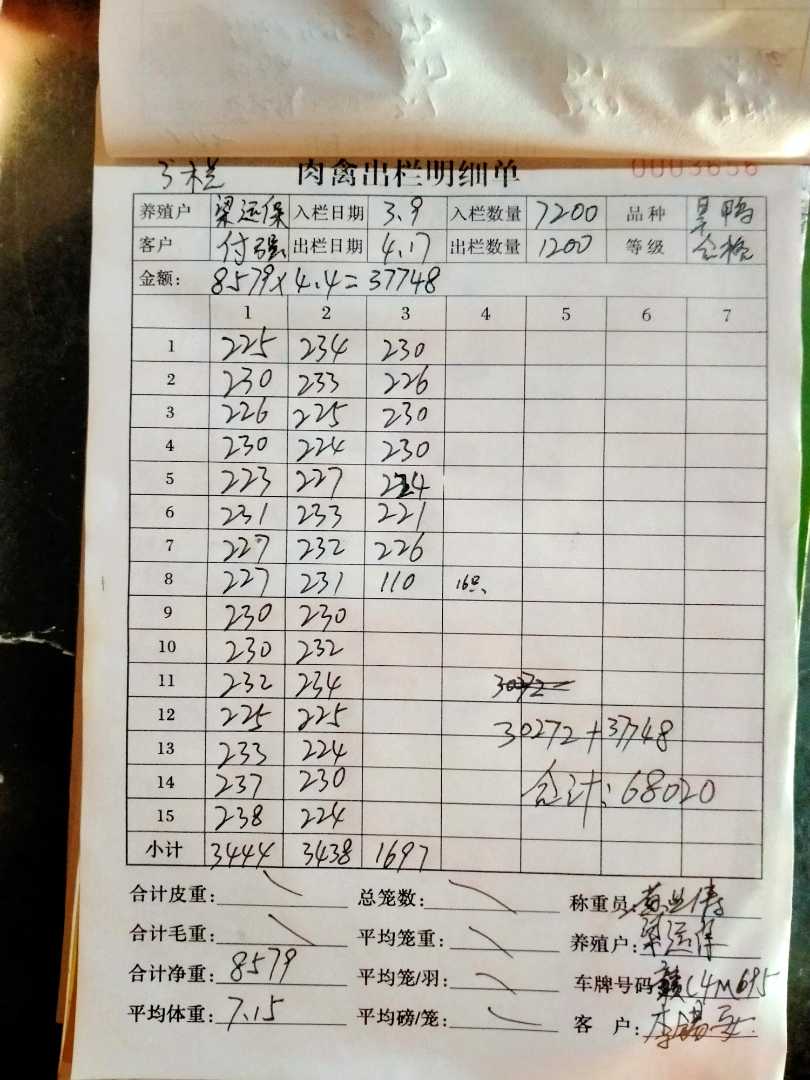 3栏 肉禽出栏明细单 0003656
养殖户 梁运保 入栏日期 3.9 入栏数量 7200 品种 鸭
客户 付强 出栏日期 4.17 出栏数量 1200 等级 合格
金额: 8579×4.4=37748
1 2 3 4 5 6 7
1 225 234 230
2 230 233 226
3 226 225 230
4 230 224 230
5 223 227 224
6 231 233 221
7 227 232 226
8 227 231 110 16只
9 230 230
10 230 232
11 232 234 30272
12 225 225
30272+37748
13 233 224
14 237 230
合计:68020
15 238 224
小计 3444 3438 1697
合计皮重: 总笼数: 称重员:
合计毛重: 平均笼重: 养殖户:梁运保
合计净重:8579 平均笼/羽: 车牌号码 赣C4M695
平均体重:7.15 平均磅/笼: 客 户: